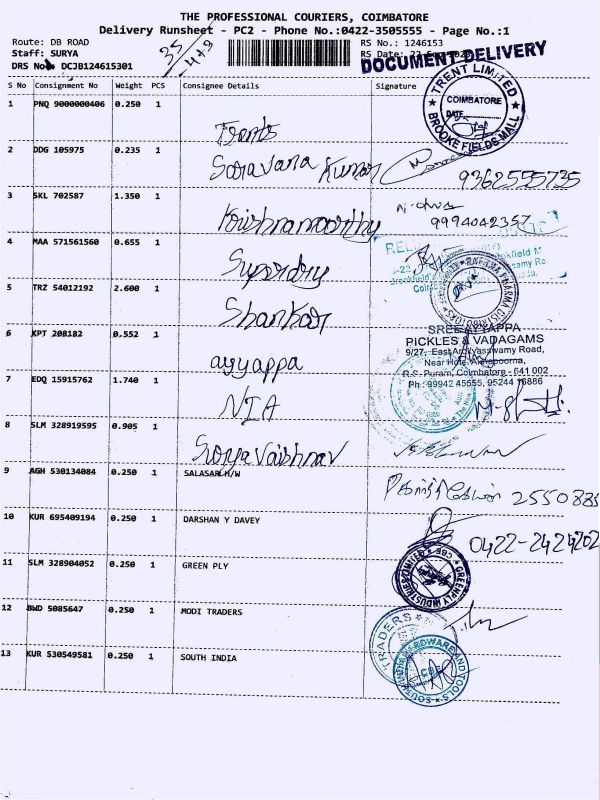 THE PROFESSIONAL COURIERS, COIMBATORE
Delivery Runsheet - PC2 - Phone No.:0422-3505555 - Page No.:1
Route: DB ROAD
RS No.: 1246153
Staff: SURYA
35/479
RS Date: 22
DOCUMENT DELIVERY
DRS No. DCJB124615301
S No Consignment No Weight PCS Consignee Details Signature
1 PNQ 9000000406 0.250 1 Trents
TRENT LIMITED
COIMBATORE
DATE
BROOKE FIELDS MALL
2 DDG 105975 0.235 1 Saravana Kumar
9362555735
3 SKL 702587 1.350 1 Krishnamoorthy
9994042357
4 MAA 571561560 0.655 1 Superdry
5 TRZ 54012192 2.600 1 Shankar
SREE AIYAPPA
PICKLES & VADAGAMS
9/27, East Arokiyaswamy Road,
Near Hotel Annapoorna,
R.S. Puram, Coimbatore - 641 002
Ph : 99942 45555, 95244 16886
6 KPT 208182 0.552 1 ayyappa
7 EDQ 15915762 1.740 1 NIA
8 SLM 328919595 0.905 1 Surya Vaishnav
9 AGH 530134084 0.250 1 SALASAR H/W
2550835
10 KUR 695409194 0.250 1 DARSHAN Y DAVEY
0422-2424202
11 SLM 328904052 0.250 1 GREEN PLY
GREENPLY INDUSTRIES LIMITED
CBE
12 BWD 5085647 0.250 1 MODI TRADERS
TRADERS
13 KUR 530549581 0.250 1 SOUTH INDIA
SOUTH INDIA HARDWARE AND TOOLS
CBE